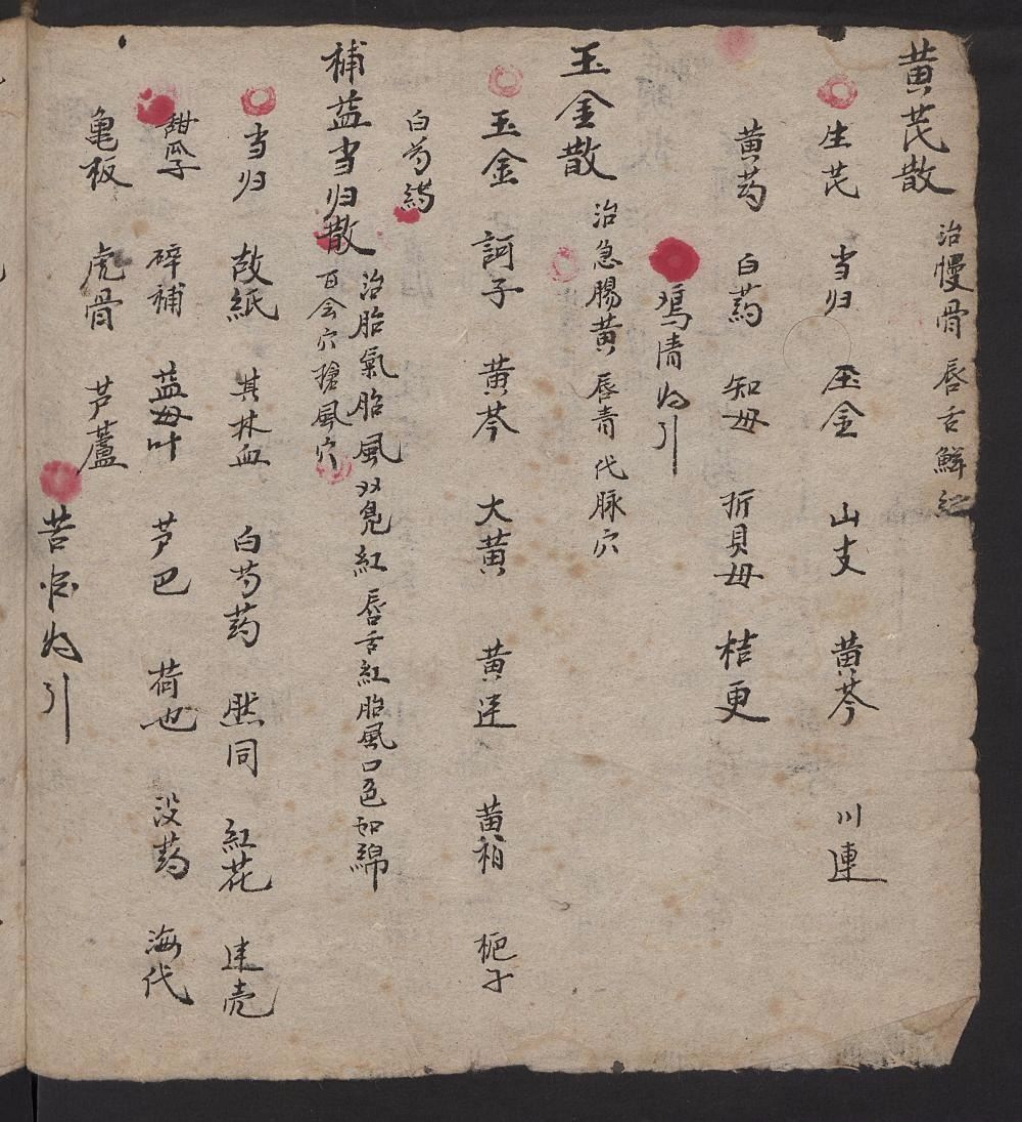 黄芪散 治慢骨 唇舌鮮紅
生芪 当归 玉金 山支 黄芩 川連
黄芍 白药 知母 折贝母 桔更
鸡清为引
玉金散 治急腸黄 唇青 代脉穴
玉金 訶子 黄芩 大黄 黄連 黄柏 栀子
白芍药
補益当归散 治胎氣胎風双凫紅 唇舌紅胎風口色如綿
百会穴搶風穴
当归 故紙 其林血 白芍药 然同 紅花 連壳
甜瓜子 碎補 益母叶 芦巴 荷也 没药 海代
亀板 虎骨 芦蘆
苦酒为引